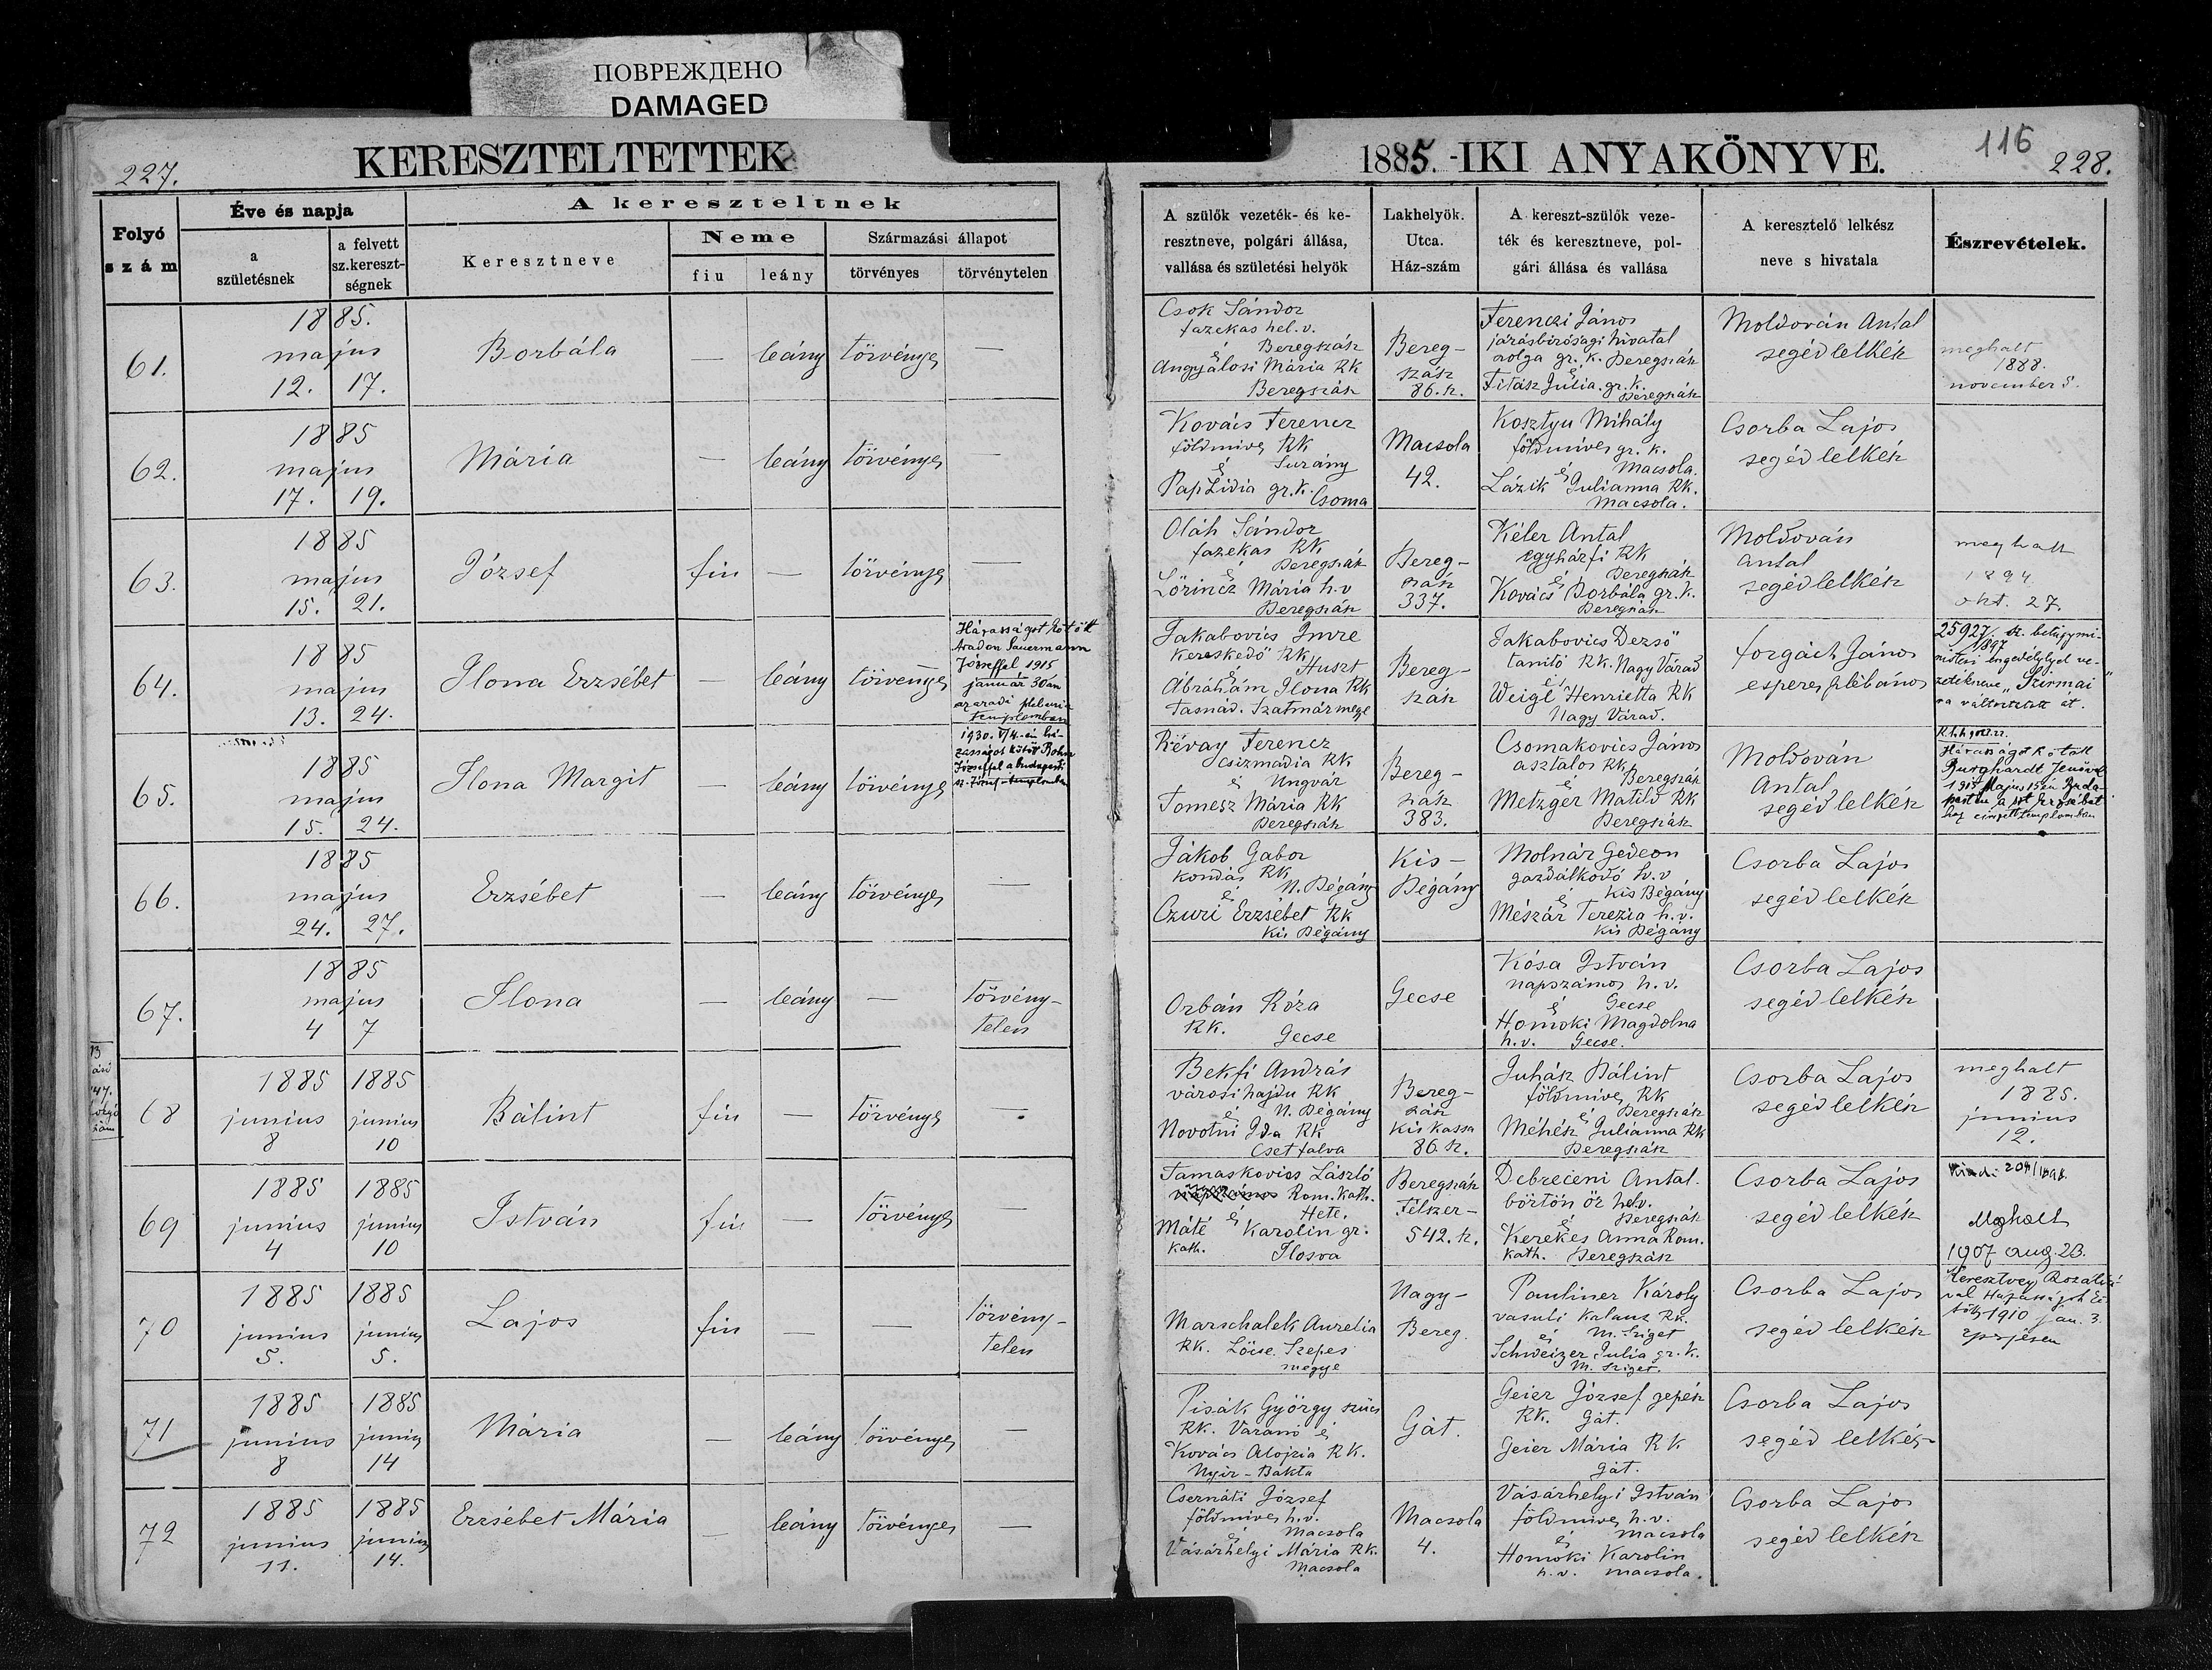 ПОВРЕЖДЕНО
DAMAGED
227.
KERESZTELTETTEK
1885. -IKI ANYAKÖNYVE.
116
228.
Folyó szám
Éve és napja
a születésnek
a felvett sz.keresztségnek
A kereszteltnek
Keresztneve
Neme
fiu
leány
Származási állapot
törvényes
törvénytelen
A szülők vezeték- és keresztneve, polgári állása, vallása és születési helyök
Lakhelyök. Utca. Ház-szám
A kereszt-szülők vezeték és keresztneve, polgári állása és vallása
A keresztelő lelkész neve s hivatala
Észrevételek.
61.
1885.
majus
12. 17.
Borbála
— leány törvényes —
Csok Sándor
fazekas hel. v.
Beregszász
é
Angyálosi Mária RK
Beregszász
Bereg-
szász
86. sz.
Ferenczi János
járásbirósagi hivatal
szolga gr. k. Beregszász
é
Titász Julia. gr. k.
Beregszász
Moldován Antal
segéd lelkész
meghalt
1888.
november 5.
62.
1885
majus
17. 19.
Mária
— leány törvényes —
Kovács Ferencz
földmives RK
é Surány
Pap Lidia gr. k. Csoma
Macsola
42.
Kosztyu Mihály
földmives gr. k.
é Macsola.
Lázik Julianna RK.
Macsola.
Csorba Lajos
segéd lelkész
63.
1885
majus
15. 21.
József
fiu — törvényes —
Oláh Sándor
fazekas RK
é Beregszász
Lőrincz Mária h. v
Beregszász
Bereg-
szász
337.
Kéler Antal
egyházfi RK
é Beregszász
Kovács Borbála gr. k.
Beregszász
Moldován
Antal
segéd lelkész
meghalt
1894
okt. 27.
64.
1885
majus
13. 24.
Ilona Erzsébet
— leány törvényes
Házasságot kötött
Aradon Sauermann
Józseffel 1915
január 30án
az aradi plebania
templomban
Jakabovics Imre
kereskedő RK
é Huszt
Ábrahám Ilona RK
Tasnád. Szatmármegye
Bereg-
szász
Jakabovics Dezső
tanitó RK. Nagy Várad
é
Weigl Henrietta RK
Nagy Várad.
Forgách János
esperes plébános
25927. sz. belügymi-
1897
nisteri engedélylyel ve-
zetékneve „Szirmai"
ra változtatott át.
65.
1885
majus
15. 24.
Ilona Margit
— leány törvényes
1930. V/4.-én há-
zasságot kötött Bohn
Józseffel a budapesti
sz. József-templomban
Révay Ferencz
csizmadia RK
é Ungvár
Tomesz Mária RK
Beregszász
Bereg-
szász
383.
Csomakovics János
asztalos RK
é Beregszász
Metzger Matild RK
Beregszász
Moldován
Antal
segéd lelkész
Házasságot kötött
Burghardt Jenővel
1915 Majus 15én Buda-
pesten a szt Erzsébet
hez cimzett templomban
66.
1885
majus
24. 27.
Erzsébet
— leány törvényes —
Jákob Gabor
kondás RK
é N. Bégány
Czuri Erzsébet RK
Kis Bégány
Kis-
Bégány
Molnár Gedeon
gazdálkodó h. v
é Kis Bégány
Mészár Terezia h. v.
Kis Bégány
Csorba Lajos
segéd lelkész
67.
1885
majus
4 7
Ilona
— leány — törvény-
telen
Orbán Róza
RK. Gecse
Gecse
Kósa István
napszámos h. v.
é Gecse
Homoki Magdolna
h. v. Gecse.
Csorba Lajos
segéd lelkész
68
1885 1885
junius junius
8 10
Bálint
fiu — törvényes -
Bekfi András
városi hajdu RK
é N. Bégány
Novotni Ida RK
Csetfalva
Bereg-
szász
Kis kassa
86. sz.
Juhász Bálint
földmives RK
é Beregszász
Méhész Julianna RK
Beregszász
Csorba Lajos
segéd lelkész
meghalt
1885.
junius
12.
69
1885 1885
junius junius
4 10
István
fiu — törvényes —
Tamaskovics László
napszámos Rom. Kath.
é Hete.
Máté Karolin gr.
kath. Ilosva
Beregszász
Felszer-
542. sz.
Debreceni Antal.
börtön őr hel. v.
é Beregszász
Kerekes Anna Rom.
kath. Beregszász
Csorba Lajos
segéd lelkész
Meghalt
1907 aug. 23.
70
1885 1885
junius junius
5. 5.
Lajos
fiu — — törvény-
telen
Marschalek Aurelia
RK. Lőcse. Szepes
megye
Nagy-
Bereg.
Pauliner Károly
vasuti kalauz RK.
é M. Sziget
Schweizer Julia gr. k.
M. Sziget.
Csorba Lajos
segéd lelkész
val Házasságot kö-
tött 1910 jan. 3.
71
1885 1885
junius junius
8 14
Mária
— leány törvényes —
Pisák György szücs
RK. Varanó é
Kovács Alojzia RK.
Nyir-Bakta
Gát.
Geier József gépész
RK. Gát.
Geier Mária RK
Gát.
Csorba Lajos
segéd lelkész
72
1885 1885
junius junius
11. 14.
Erzsébet Mária
— leány törvényes —
Csernáti József
földmives h. v.
é Macsola
Vásárhelyi Mária RK.
Macsola
Macsola
4.
Vásárhelyi István
földmives h. v.
é Macsola
Homoki Karolin
h. v. Macsola.
Csorba Lajos
segéd lelkész